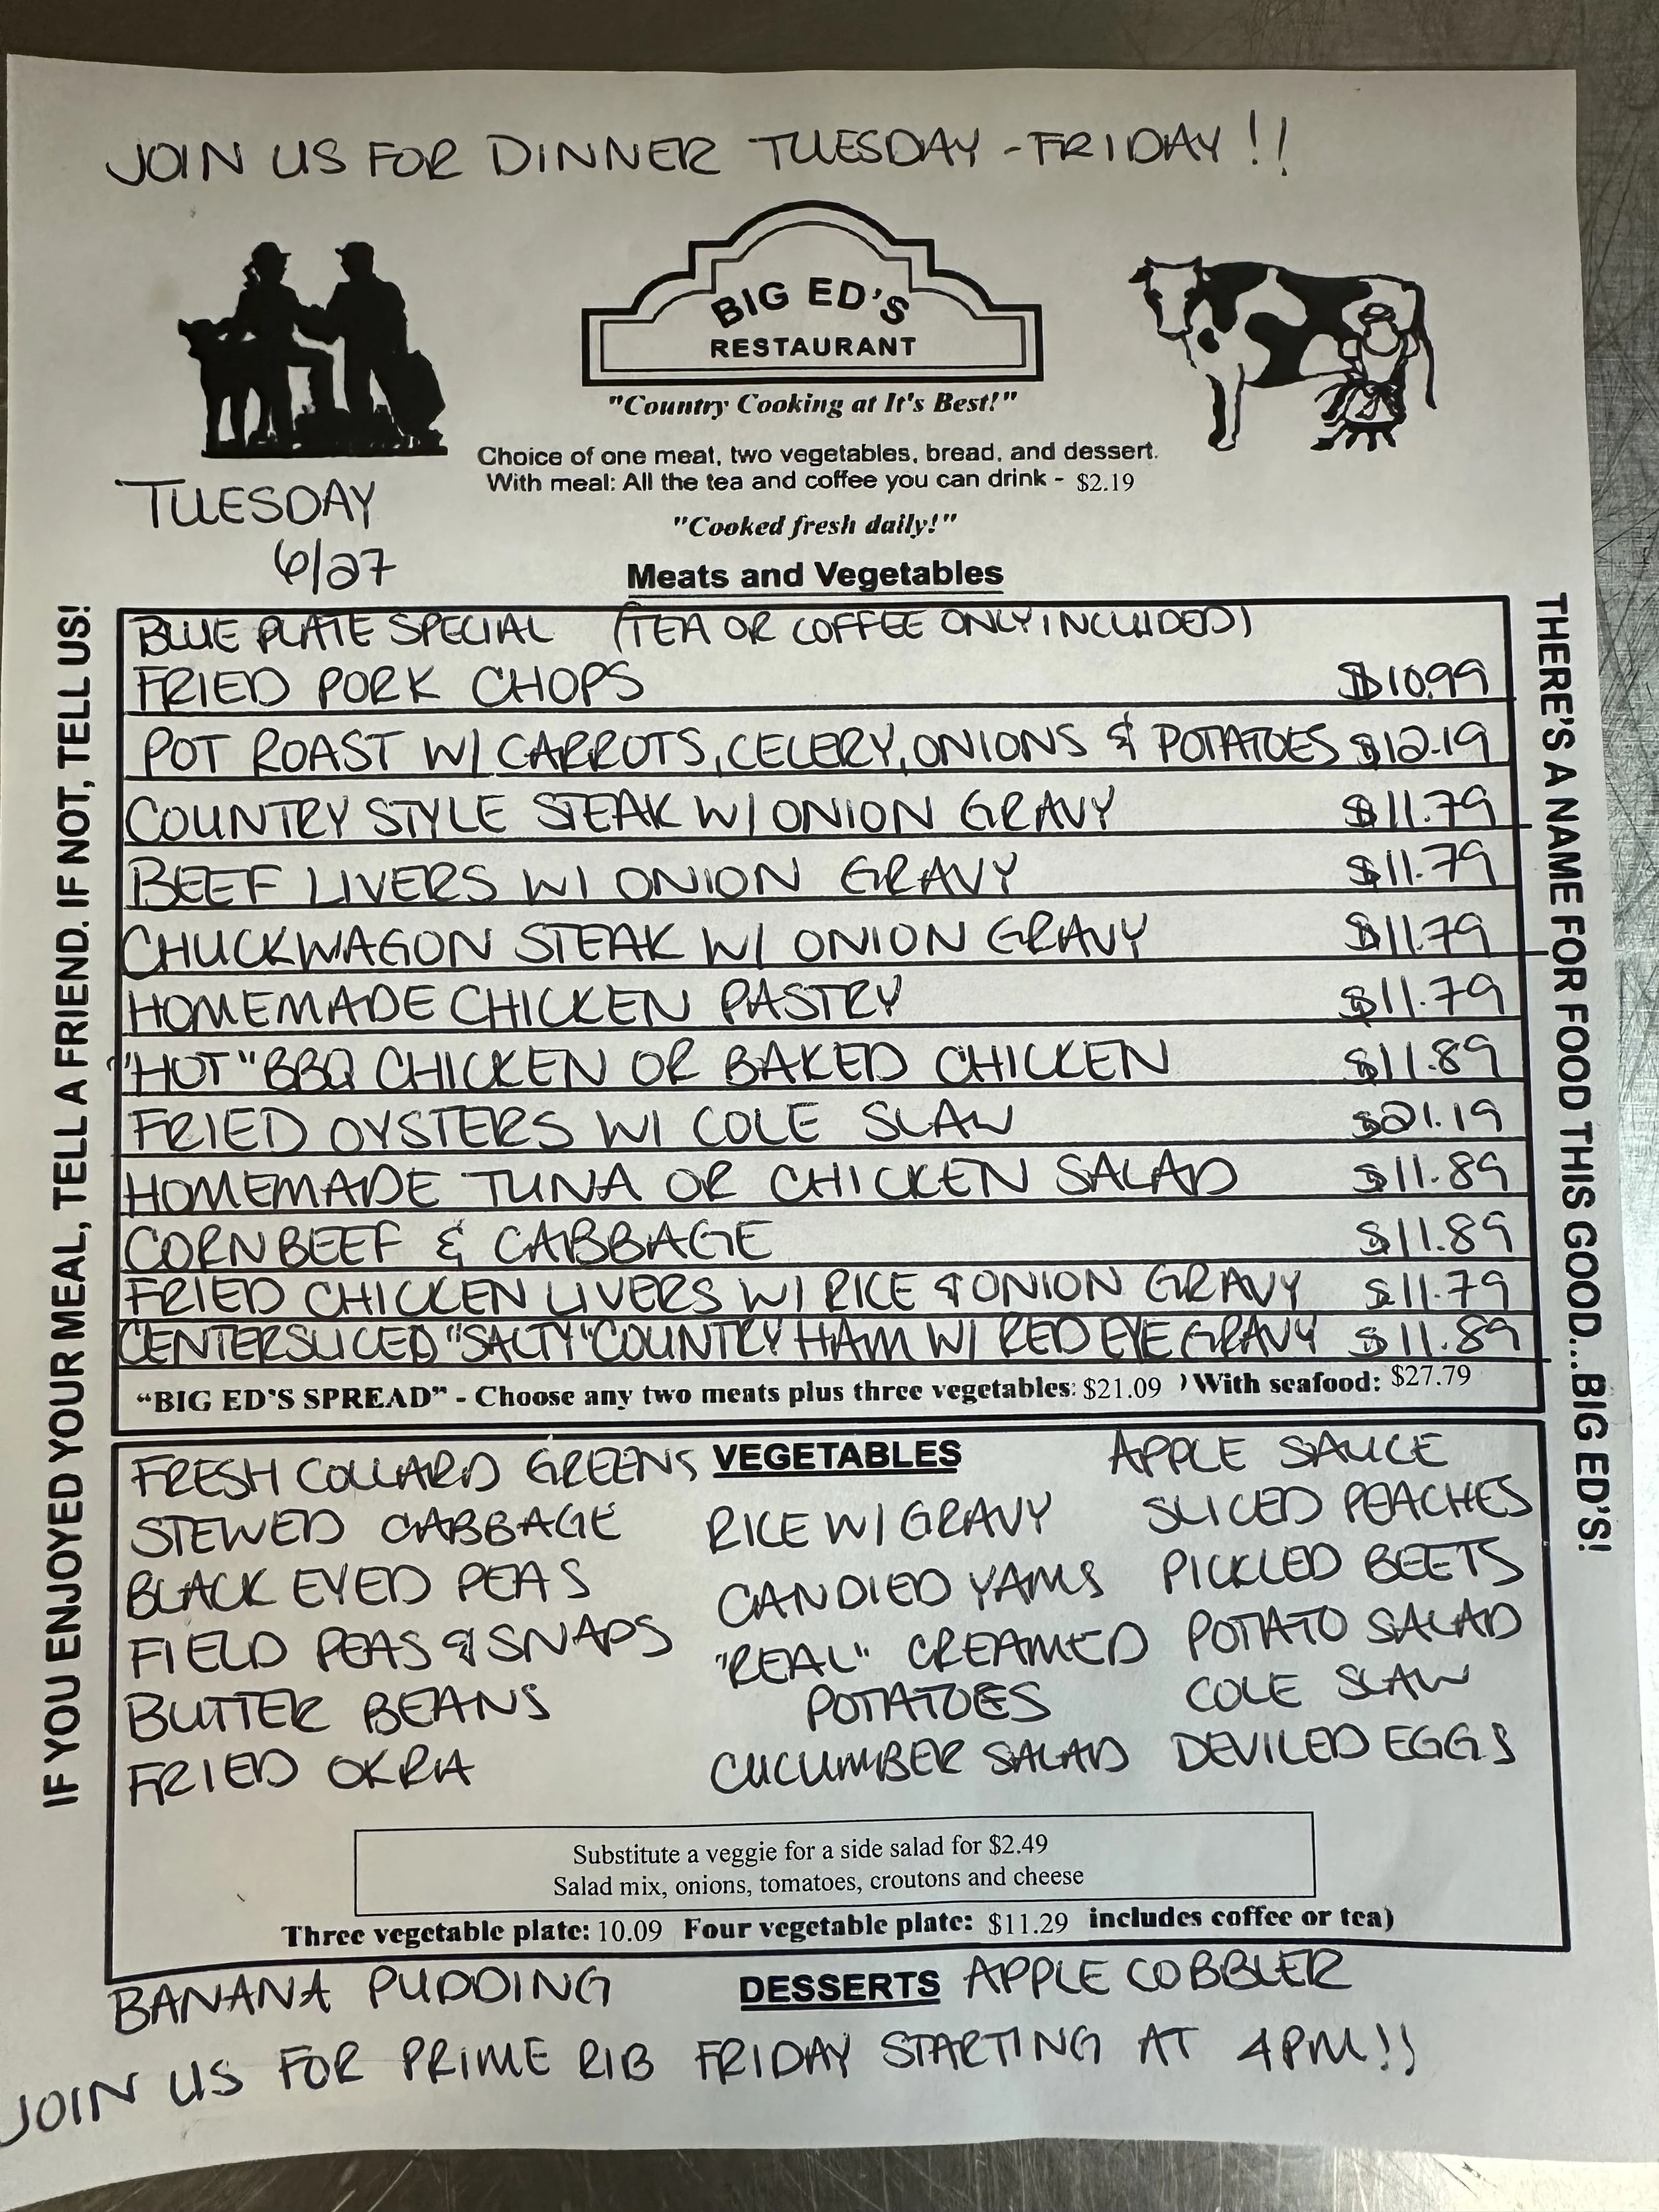 JOIN US FOR DINNER TUESDAY - FRIDAY!!
BIG ED'S
RESTAURANT
"Country Cooking at It's Best!"
Choice of one meat, two vegetables, bread, and dessert.
With meal: All the tea and coffee you can drink - $2.19
"Cooked fresh daily!"
TUESDAY
6/27
Meats and Vegetables
BLUE PLATE SPECIAL (TEA OR COFFEE ONLY INCLUDED)
FRIED PORK CHOPS $10.99
POT ROAST W/ CARROTS, CELERY, ONIONS & POTATOES $12.19
COUNTRY STYLE STEAK W/ ONION GRAVY $11.79
BEEF LIVERS W/ ONION GRAVY $11.79
CHUCKWAGON STEAK W/ ONION GRAVY $11.79
HOMEMADE CHICKEN PASTRY $11.79
"HOT" BBQ CHICKEN OR BAKED CHICKEN $11.89
FRIED OYSTERS W/ COLE SLAW $21.19
HOMEMADE TUNA OR CHICKEN SALAD $11.89
CORNBEEF & CABBAGE $11.89
FRIED CHICKEN LIVERS W/ RICE & ONION GRAVY $11.79
CENTERSLICED "SALTY" COUNTRY HAM W/ RED EYE GRAVY $11.89
"BIG ED'S SPREAD" - Choose any two meats plus three vegetables: $21.09 ) With seafood: $27.79
VEGETABLES
FRESH COLLARD GREENS
STEWED CABBAGE
BLACK EYED PEAS
FIELD PEAS & SNAPS
BUTTER BEANS
FRIED OKRA
RICE W/ GRAVY
CANDIED YAMS
"REAL" CREAMED
POTATOES
CUCUMBER SALAD
APPLE SAUCE
SLICED PEACHES
PICKLED BEETS
POTATO SALAD
COLE SLAW
DEVILED EGGS
Substitute a veggie for a side salad for $2.49
Salad mix, onions, tomatoes, croutons and cheese
Three vegetable plate: 10.09 Four vegetable plate: $11.29 includes coffee or tea)
DESSERTS
BANANA PUDDING
APPLE COBBLER
JOIN US FOR PRIME RIB FRIDAY STARTING AT 4PM!!
IF YOU ENJOYED YOUR MEAL, TELL A FRIEND. IF NOT, TELL US!
THERE'S A NAME FOR FOOD THIS GOOD...BIG ED'S!